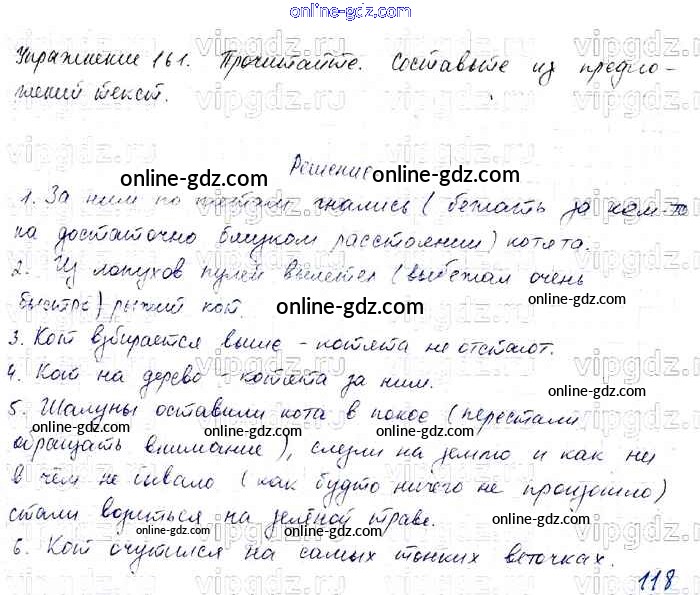 online-gdz.com
Упражнение 161. Прочитайте. Составьте из предло-
жений текст.
Решение
online-gdz.com online-gdz.com
1. За ним по пятам гнались (бежать за кем-то
на достаточно близком расстоянии) котята.
2. Из лопухов пулей вылетел (выбежал очень
быстро) рыжий кот.
online-gdz.com online-gdz.com
3. Кот взбирается выше - котята не отстают.
4. Кот на дерево - котята за ним.
online-gdz.com
5. Шалуны оставили кота в покое (перестали
online-gdz.com online-gdz.com online-gdz.com
обращать внимание), слезли на землю и как ни
в чём не бывало (как будто ничего не произошло)
стали возиться на зелёной траве.
online-gdz.com online-gdz.com
6. Кот очутился на самых тонких веточках.
118